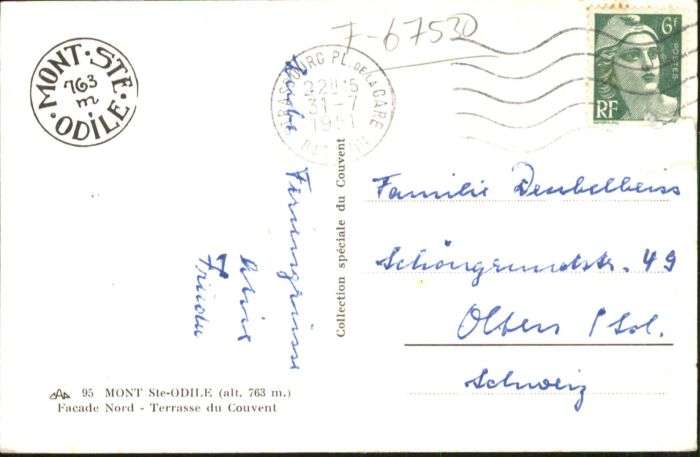 7-67530
MONT·STE·ODILE
763
m
STRASBOURG PL. DE LA GARE
31-7
1951
BAS RHIN
6f
POSTES
RF
Feriengrüsse
Frieda
Collection spéciale du Couvent
Familie Deubelbeiss
Schöngrundstr. 49
Olten / Sol.
Schweiz
95 MONT Ste-ODILE (alt. 763 m.)
Facade Nord - Terrasse du Couvent